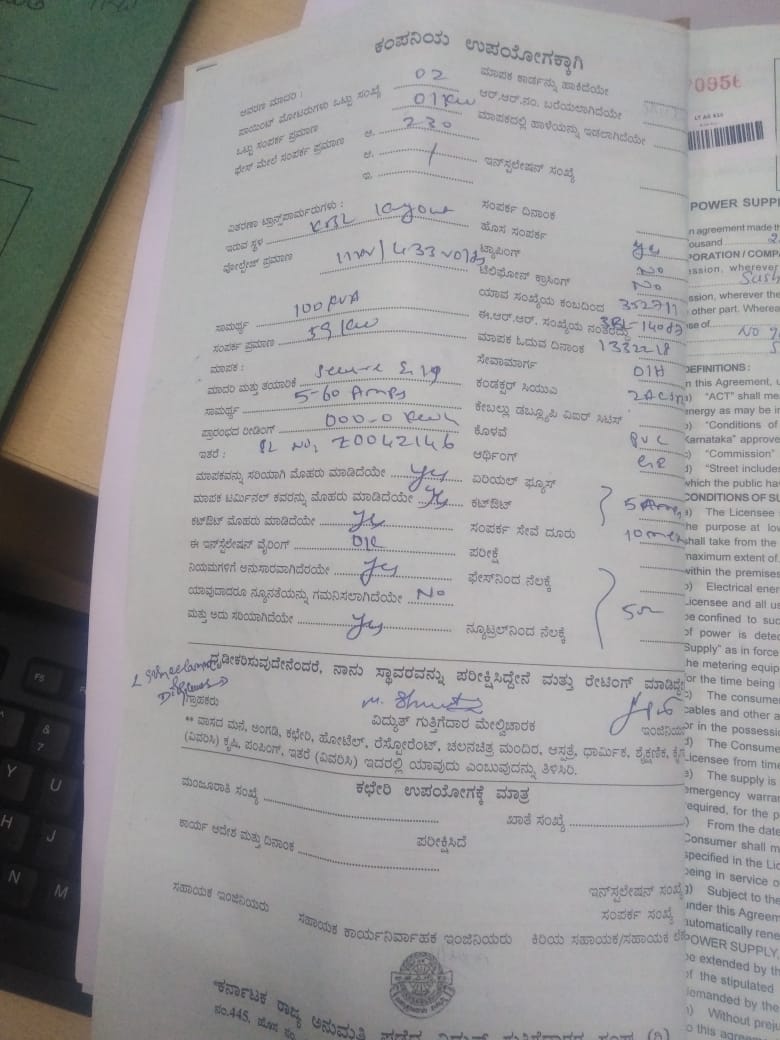 ಕಂಪನಿಯ ಉಪಯೋಗಕ್ಕಾಗಿ
ಆವರಣ ಮಾದರಿ :
ಪಾಯಿಂಟ್ ಮೋಟರುಗಳು ಒಟ್ಟು ಸಂಖ್ಯೆ 02
ಒಟ್ಟು ಸಂಪರ್ಕ ಪ್ರಮಾಣ 01 KW
ಫೇಸ್ ಮೇಲೆ ಸಂಪರ್ಕ ಪ್ರಮಾಣ ಆ. 230
ಆ. /
ಇ.
ವಿತರಣಾ ಟ್ರಾನ್ಸ್‌ಫಾರ್ಮರುಗಳು :
ಇರುವ ಸ್ಥಳ KBL layout
ವೋಲ್ಟೇಜ್ ಪ್ರಮಾಣ 11KV/433 volts
ಸಾಮರ್ಥ್ಯ 100 KVA
ಸಂಪರ್ಕ ಪ್ರಮಾಣ 59 KW
ಮಾಪಕ :
ಮಾದರಿ ಮತ್ತು ತಯಾರಿಕೆ Secure
ಸಾಮರ್ಥ್ಯ 5-60 Amps
ಪ್ರಾರಂಭದ ರೀಡಿಂಗ್ 000-0 KWh
ಇತರೆ : SL No, Z0042146
ಮಾಪಕವನ್ನು ಸರಿಯಾಗಿ ಮೊಹರು ಮಾಡಿದೆಯೇ yes
ಮಾಪಕ ಟರ್ಮಿನಲ್ ಕವರನ್ನು ಮೊಹರು ಮಾಡಿದೆಯೇ yes
ಕಟ್‌ಔಟ್ ಮೊಹರು ಮಾಡಿದೆಯೇ yes
ಈ ಇನ್‌ಸ್ಟಲೇಷನ್ ವೈರಿಂಗ್ OK
ನಿಯಮಗಳಿಗೆ ಅನುಸಾರವಾಗಿದೆಯೇ yes
ಯಾವುದಾದರೂ ನ್ಯೂನತೆಯನ್ನು ಗಮನಿಸಲಾಗಿದೆಯೇ No
ಮತ್ತು ಅದು ಸರಿಯಾಗಿದೆಯೇ yes
ಮಾಪಕ ಕಾರ್ಡನ್ನು ಹಾಕಿದೆಯೇ
ಆರ್.ಆರ್.ನಂ. ಬರೆಯಲಾಗಿದೆಯೇ
ಮಾಪಕದಲ್ಲಿ ಹಾಳೆಯನ್ನು ಇಡಲಾಗಿದೆಯೇ
ಇನ್‌ಸ್ಟಲೇಷನ್ ಸಂಖ್ಯೆ
ಸಂಪರ್ಕ ದಿನಾಂಕ
ಹೊಸ ಸಂಪರ್ಕ yes
ಟ್ಯಾಪಿಂಗ್ No
ಟೆಲಿಫೋನ್ ಕ್ರಾಸಿಂಗ್ No
ಯಾವ ಸಂಖ್ಯೆಯ ಕಂಬದಿಂದ
ಈ.ಆರ್.ಆರ್. ಸಂಖ್ಯೆಯ ನಂತರದ್ದು
ಮಾಪಕ ಓದುವ ದಿನಾಂಕ
ಸೇವಾಮಾರ್ಗ OIH
ಕಂಡಕ್ಟರ್ ಸಿಯುಎ
ಕೇಬಲ್ಲು ಡಬ್ಲ್ಯೂಪಿ ವಿಐರ್ ಸಿಟಿಸ್
ಕೊಳವೆ PVC
ಆರ್ಥಿಂಗ್
ಏರಿಯಲ್ ಫ್ಯೂಸ್
ಕಟ್‌ಔಟ್ 5 Amps
ಸಂಪರ್ಕ ಸೇವೆ ದೂರು
ಪರೀಕ್ಷೆ
ಫೇಸ್‌ನಿಂದ ನೆಲಕ್ಕೆ
ನ್ಯೂಟ್ರಲ್‌ನಿಂದ ನೆಲಕ್ಕೆ
ದೃಢೀಕರಿಸುವುದೇನೆಂದರೆ, ನಾನು ಸ್ಥಾವರವನ್ನು ಪರೀಕ್ಷಿಸಿದ್ದೇನೆ ಮತ್ತು ರೇಟಿಂಗ್ ಮಾಡಿದ್ದೇ
ಗ್ರಾಹಕರು
ವಿದ್ಯುತ್ ಗುತ್ತಿಗೆದಾರ ಮೇಲ್ವಿಚಾರಕ
** ವಾಸದ ಮನೆ, ಅಂಗಡಿ, ಕಛೇರಿ, ಹೋಟೆಲ್, ರೆಸ್ಟೋರೆಂಟ್, ಚಲನಚಿತ್ರ ಮಂದಿರ, ಆಸ್ಪತ್ರೆ, ಧಾರ್ಮಿಕ, ಶೈಕ್ಷಣಿಕ,
(ವಿವರಿಸಿ) ಕೃಷಿ, ಪಂಪಿಂಗ್, ಇತರೆ (ವಿವರಿಸಿ) ಇದರಲ್ಲಿ ಯಾವುದು ಎಂಬುವುದನ್ನು ತಿಳಿಸಿರಿ.
ಕಛೇರಿ ಉಪಯೋಗಕ್ಕೆ ಮಾತ್ರ
ಮಂಜೂರಾತಿ ಸಂಖ್ಯೆ
ಖಾತೆ ಸಂಖ್ಯೆ
ಕಾರ್ಯ ಆದೇಶ ಮತ್ತು ದಿನಾಂಕ
ಪರೀಕ್ಷಿಸಿದೆ
ಇನ್‌ಸ್ಟಲೇಷನ್ ಸಂಖ್ಯೆ
ಸಂಪರ್ಕ ಸಂಖ್ಯೆ
ಸಹಾಯಕ ಇಂಜಿನಿಯರು
ಸಹಾಯಕ ಕಾರ್ಯನಿರ್ವಾಹಕ ಇಂಜಿನಿಯರು
ಕಿರಿಯ ಸಹಾಯಕ/ಸಹಾಯಕ
"ಕರ್ನಾಟಕ ರಾಜ್ಯ ಅನುಮತಿ ಪಡೆದ ವಿದ್ಯುತ್ ಗುತ್ತಿಗೆದಾರರ ಸಂಘ (ರಿ)
ನಂ.445, ಹೊಸ
LT AG
POWER SUPPL
n agreement made th
ousand
PORATION / COMPA
ssion, wherever
ssion, wherever the
other part. Wherea
se of
DEFINITIONS :
n this Agreement, u
"ACT" shall me
nergy as may be i
"Conditions of
Karnataka" approve
"Commission"
"Street include
which the public hav
CONDITIONS OF SU
The Licensee
he purpose at low
shall take from the
maximum extent of
within the premises
Electrical ener
Licensee and all u
be confined to suc
of power is detec
Supply" as in force
he metering equip
for the time being
The consumer
cables and other a
or in the possessio
The Consume
Licensee from time
The supply is
emergency warra
equired, for the p
From the date
Consumer shall m
specified in the Lic
being in service o
Subject to the
under this Agreem
automatically rene
POWER SUPPLY,
be extended by th
of the stipulated
demanded by the
Without preju
o this agreem
F5
F6
&
7
Y
U
H
J
N
M